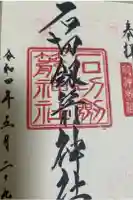 奉拝
石切劔箭神社
石切劔
箭神社
令和四年五月二十九